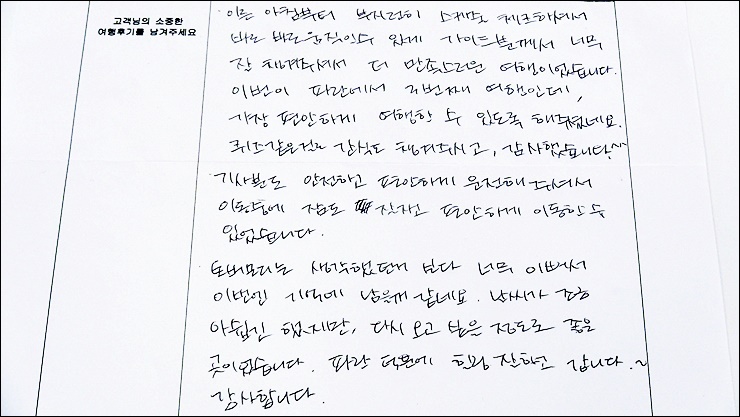 고객님의 소중한
여행후기를 남겨주세요
이른 아침부터 부지런히 스케줄 체크하셔서
바로 바로 움직일수 있게 가이드분께서 너무
잘 챙겨주셔서 더 만족스러운 여행이었습니다.
이번이 파란에서 번째 여행인데,
가장 편안하게 여행할 수 있도록 해주셨네요.
퀴즈같은걸로 간식도 챙겨주시고, 감사했습니다^^
기사분도 안전하고 편안하게 운전해주셔서
이동중에 잠도 잘자고 편안하게 이동할 수
있었습니다.
토버모리는 생각했던거 보다 너무 이뻐서
이번엔 기억에 남을거 같네요. 날씨가 조금
아쉽긴 했지만, 다시 오고 싶은 정도로 좋은
곳이었습니다. 파란 덕분에 힐링 잘하고 갑니다.~
감사합니다.